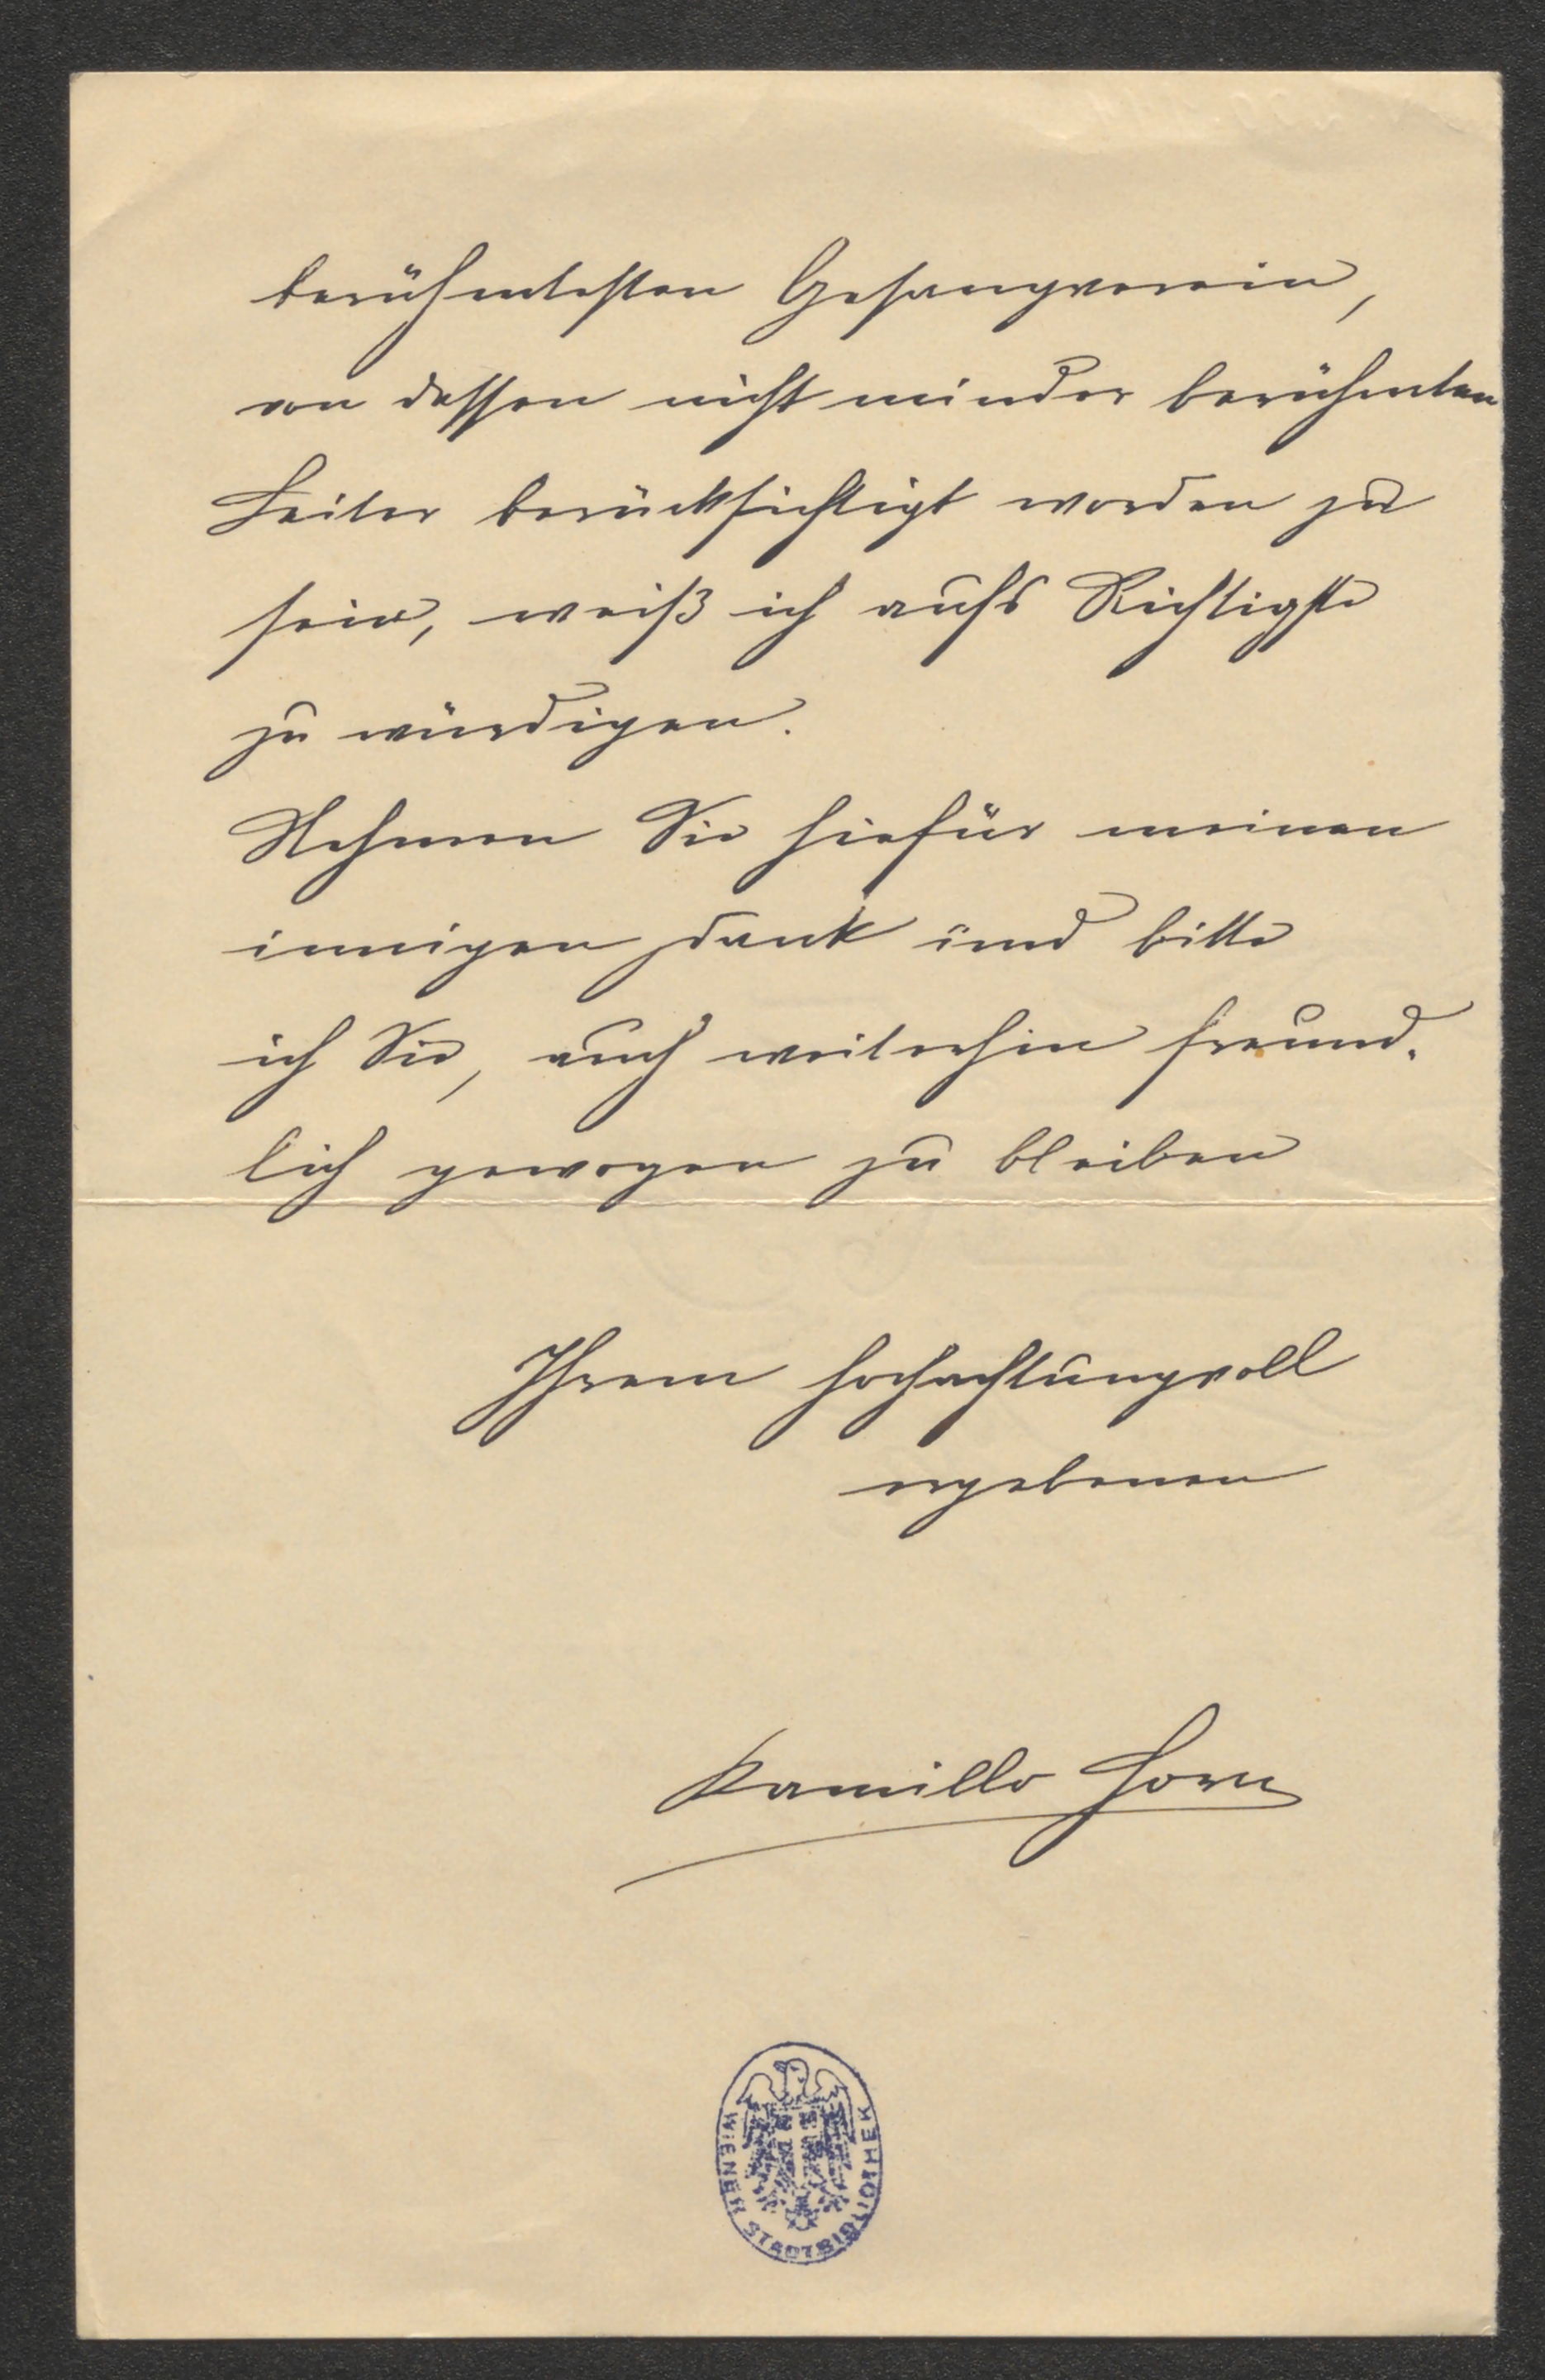 berühmtesten Gesangverein,
von dessen nicht minder berühmten
Leiter berücksichtigt worden zu
sein, weiß ich aufs Richtigste
zu würdigen.
Nehmen Sie hiefür meinen
innigen Dank und bitte
ich Sie, auch weiterhin freund-
lich gewogen zu bleiben
Ihrem hochachtungvoll
ergebenen
Kamillo Horn
WIENER STADTBIBLIOTHEK